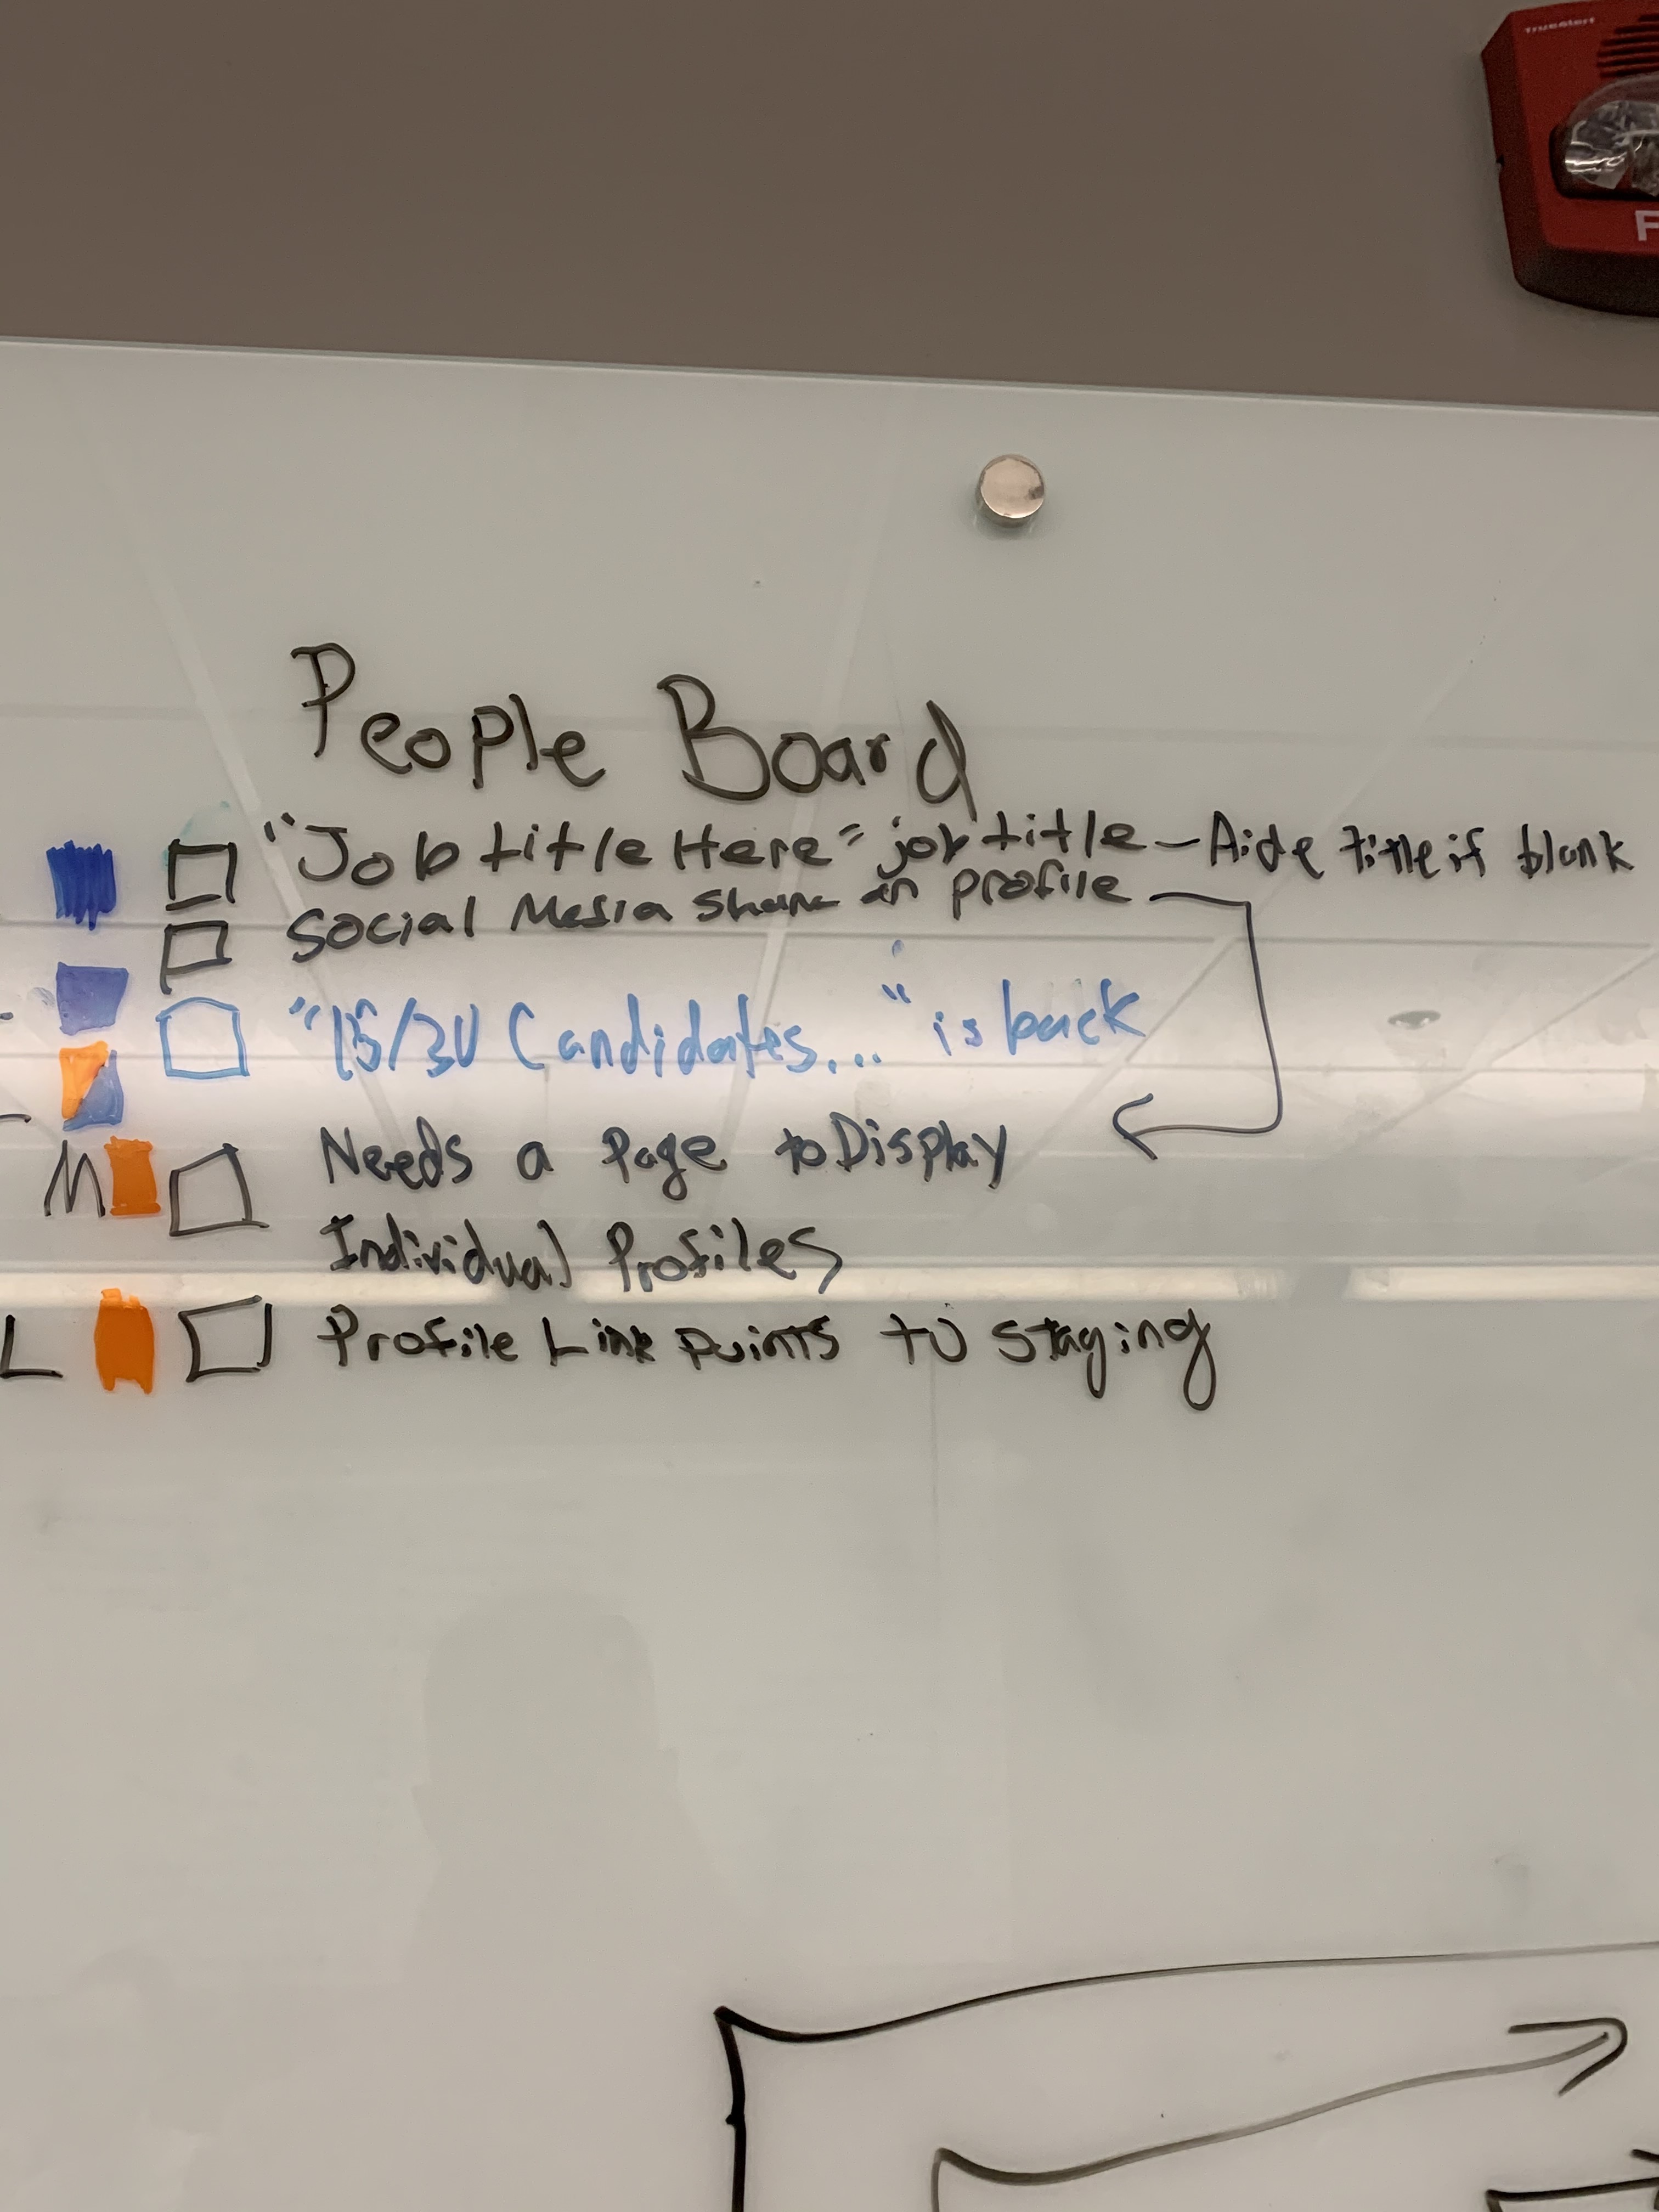 TrueAlert
F
People Board
"Job title Here" job title - Hide title if blank
Social Media Share in profile
"15/30 Candidates..." is back
M Needs a Page to Display
Individual Profiles
L Profile Link points to staging